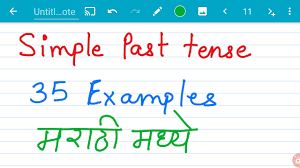 Untitl...ote 11
Simple Past tense
35 Examples
मराठी मध्ये